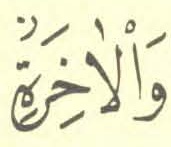 وَالْاٰخِرَةِؗ